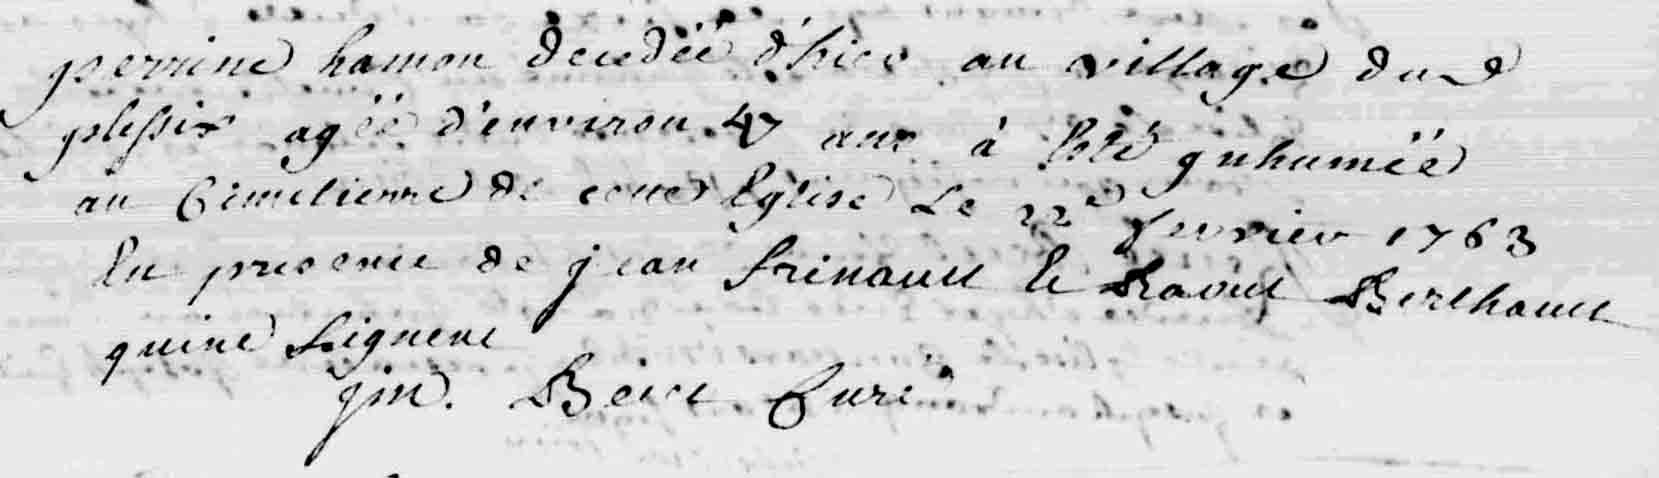 perrine hamon decedéé d'hier au village du
plessix agéé d'environ 47 ans à Eté ynhuméé
au Cimetierre de cette Eglise Le 22e fevrier 1763
En presence de jean frinault Et Raoul Berthault
qui ne signent
jm. Curé